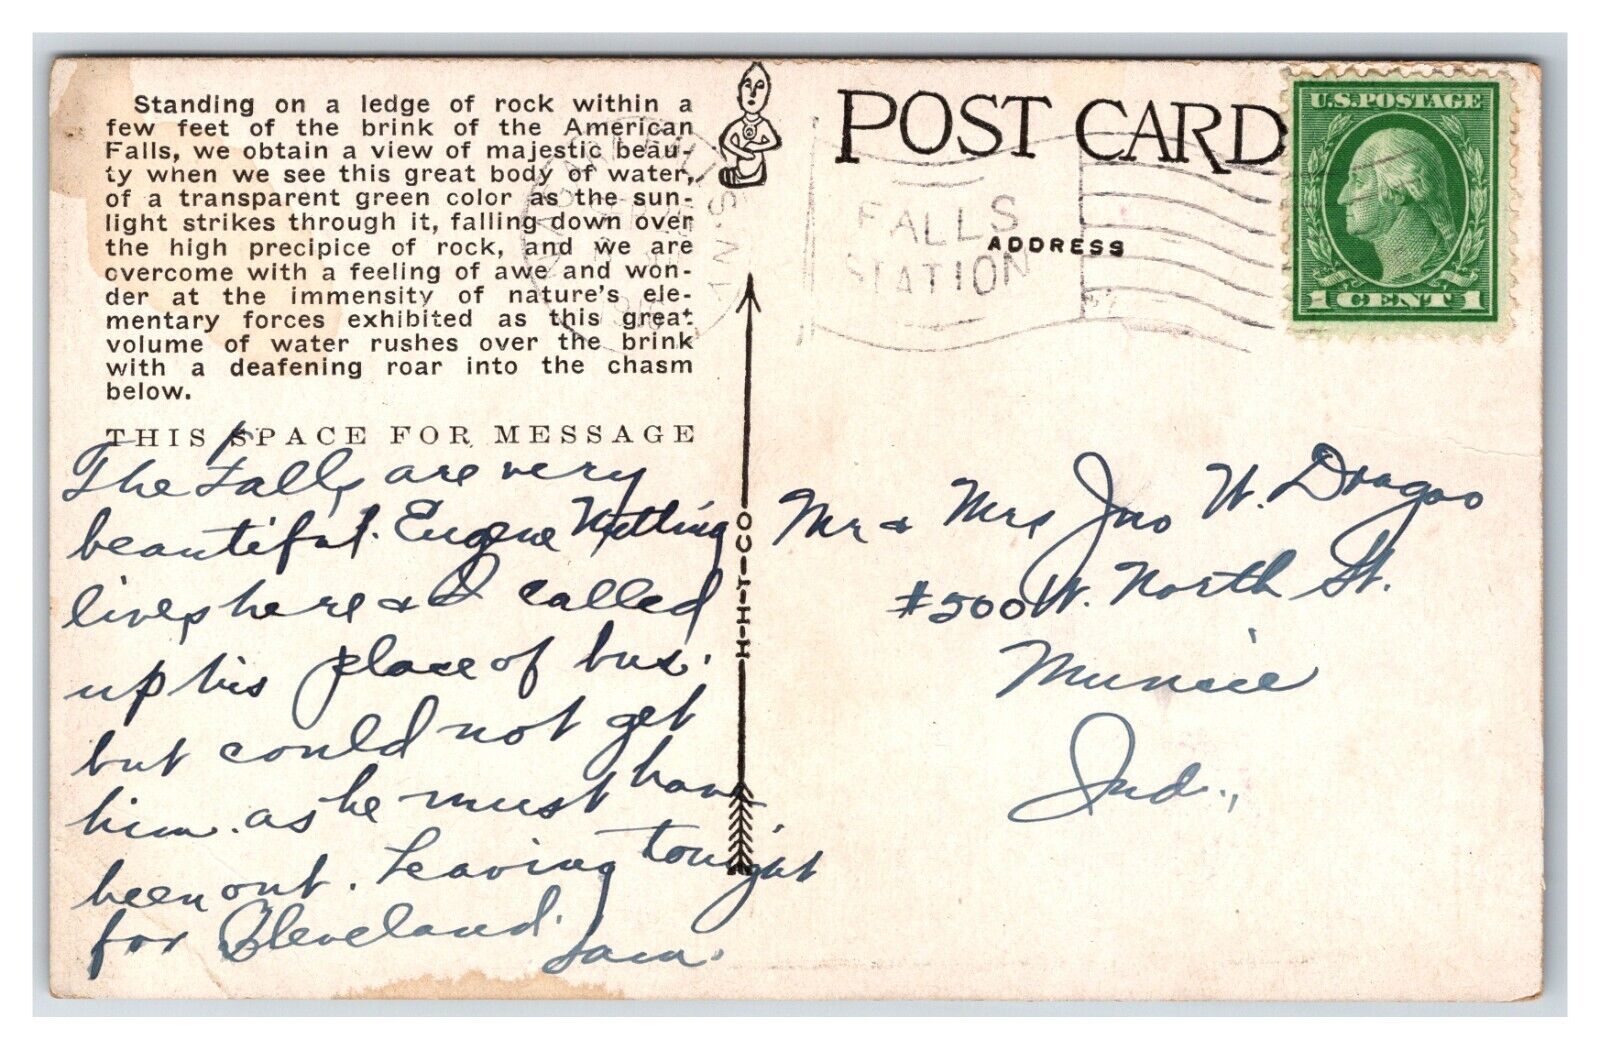 Standing on a ledge of rock within a
few feet of the brink of the American
Falls, we obtain a view of majestic beau-
ty when we see this great body of water,
of a transparent green color as the sun-
light strikes through it, falling down over
the high precipice of rock, and we are
overcome with a feeling of awe and won-
der at the immensity of nature's ele-
mentary forces exhibited as this great
volume of water rushes over the brink
with a deafening roar into the chasm
below.
THIS SPACE FOR MESSAGE
The Falls are very
beautiful. Eugene
lives here & I called
up his place of bus.
but could not get
him. as he must have
been out. Leaving tonight
for Cleveland.
Sam.
H-H-T-CO
POST CARD
ADDRESS
FALLS
STATION
U.S. POSTAGE
1 CENT 1
Mr & Mrs Jno W. Dragoo
#500 W. North St.
Muncie
Ind.,